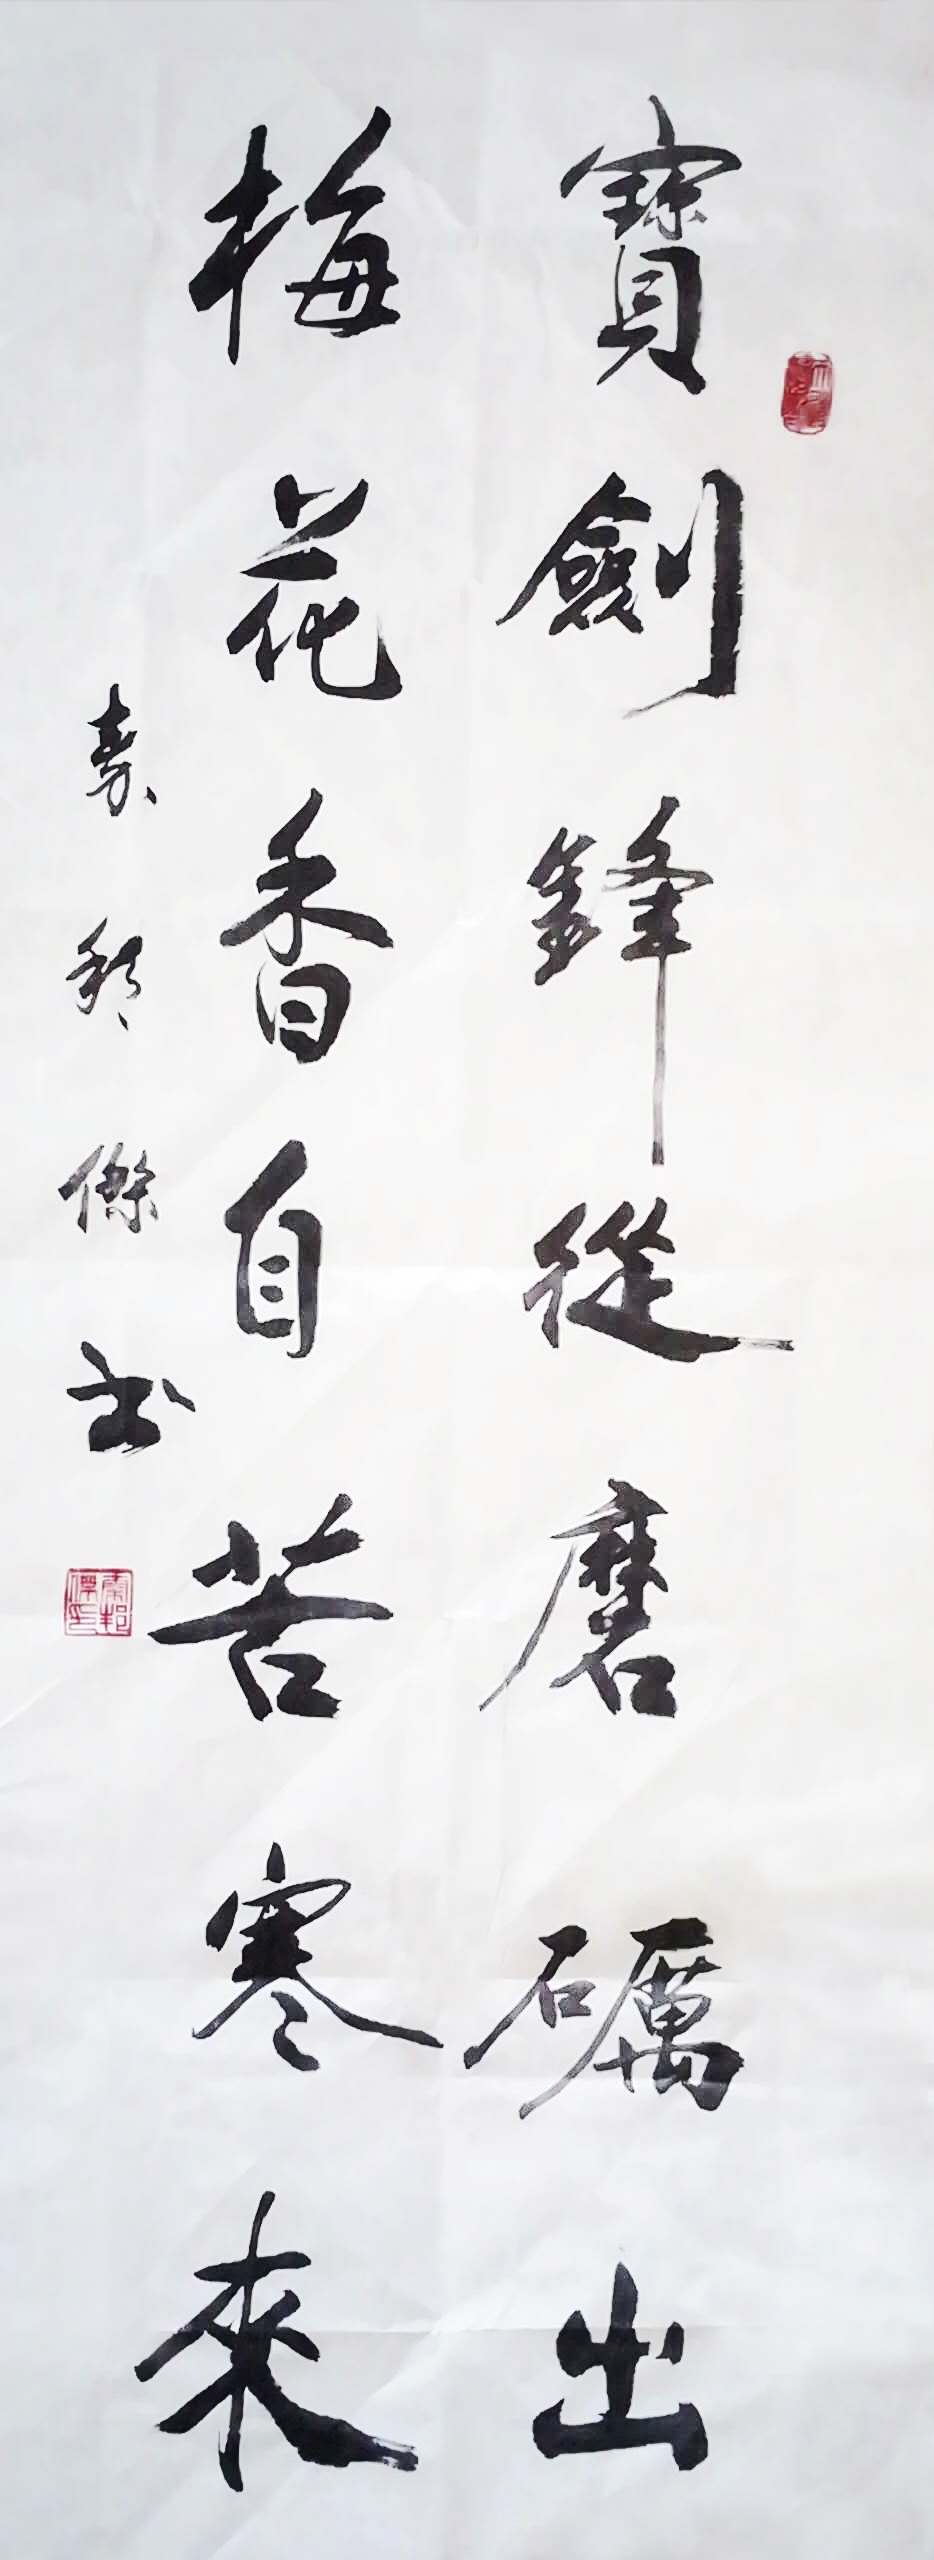 寶劍鋒從磨礪出
梅花香自苦寒來
秦邦傑書